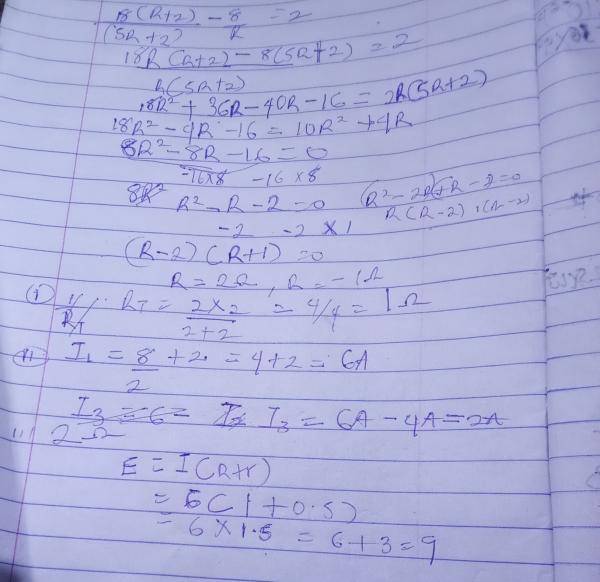 18(R+2)/(5R+2) - 8/R = 2
18R(R+2) - 8(5R+2)/R(5R+2) = 2
18R² + 36R - 40R - 16 = 2R(5R+2)
18R² - 4R - 16 = 10R² + 4R
8R² - 8R - 16 = 0
-16×8 -16×8
8R² R² - R - 2 = 0 (R² - 2R)+R - 2 = 0
-2 -2 × 1 R(R-2)+1(R-2)
(R-2)(R+1) = 0
R = 2Ω, R = -1Ω
(i) 1/RT RT = 2×2/2+2 = 4/4 = 1Ω
(ii) I₁ = 8/2 + 2 = 4+2 = 6A
I₃ = 6 = I₂ I₃ = 6A - 4A = 2A
iii 2Ω
E = I(R+r)
= 6(1+0.5)
= 6 × 1.5 = 6+3 = 9